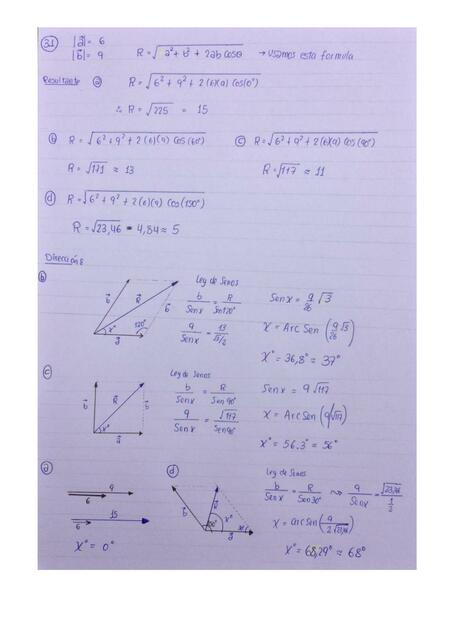 31 |a⃗| = 6
|b⃗| = 9 R = √a² + b² + 2ab cosθ → Usamos esta formula
Resultante ⓐ R = √6² + 9² + 2(6)(9) cos(0°)
∴ R = √225 = 15
ⓑ R = √6² + 9² + 2(6)(9) cos(60°) ⓒ R = √6² + 9² + 2(6)(9) cos(90°)
R = √171 ≈ 13 R = √117 ≈ 11
ⓓ R = √6² + 9² + 2(6)(9) cos(150°)
R = √23,46 = 4,84 ≈ 5
Dirección:
ⓑ Ley de Senos
b/Sen x = R/Sen120°
9/Sen x = 13/(√3/2)
Sen x = 9/26 √3
x = Arc Sen (9/26 √3)
x° = 36,8° ≈ 37°
b⃗ R⃗ b⃗ x° 120° a⃗
ⓒ Ley de Senos
b/Sen x = R/Sen 90°
9/Sen x = √117/Sen 90°
Sen x = 9/√117
x = Arc Sen (9/√117)
x° = 56.3° ≈ 56°
b⃗ R⃗ b⃗ x° a⃗
ⓐ 9
6
15
6
x° = 0°
ⓓ Ley de Senos
b/Sen x = R/Sen 30° ⇝ 9/Sen x = √23,46/(1/2)
x = arc Sen (9/2√23,46)
x° = 68,29° ≈ 68°
b⃗ R⃗ x° a⃗